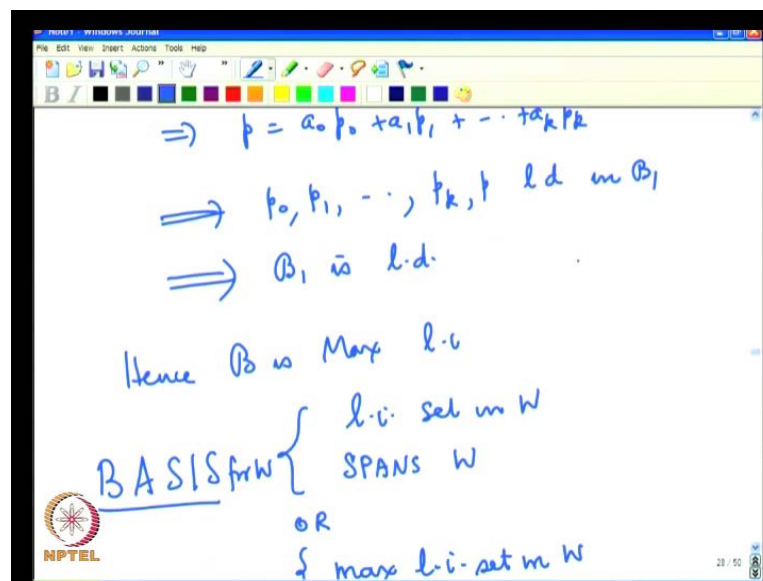 Note1 - Windows Journal
File Edit View Insert Actions Tools Help
B I
⟹ p = a₀p₀ + a₁p₁ + - - · + aₖpₖ
⟹ p₀, p₁, - - ·, pₖ, p l d in B₁
⟹ B₁ is l.d.
Hence B is Max l.i
l.i. set in W
BASIS for W { SPANS W
OR
{ max l.i. set in W
NPTEL
28 / 50